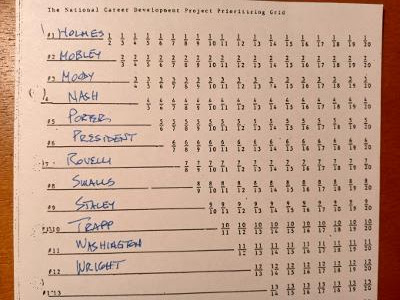 The National Career Development Project Prioritizing Grid
#1 HOLMES 1 1 1 1 1 1 1 1 1 1 1 1 1 1 1 1 1 1 1
2 3 4 5 6 7 8 9 10 11 12 13 14 15 16 17 18 19 20
#2 MOBLEY 2 2 2 2 2 2 2 2 2 2 2 2 2 2 2 2 2 2
3 4 5 6 7 8 9 10 11 12 13 14 15 16 17 18 19 20
#3 MOODY 3 3 3 3 3 3 3 3 3 3 3 3 3 3 3 3 3
4 5 6 7 8 9 10 11 12 13 14 15 16 17 18 19 20
NASH 4 4 4 4 4 4 4 4 4 4 4 4 4 4 4 4
5 6 7 8 9 10 11 12 13 14 15 16 17 18 19 20
#5 PORTER 5 5 5 5 5 5 5 5 5 5 5 5 5 5 5
6 7 8 9 10 11 12 13 14 15 16 17 18 19 20
#6 PRESIDENT 6 6 6 6 6 6 6 6 6 6 6 6 6 6
7 8 9 10 11 12 13 14 15 16 17 18 19 20
ROVELLI 7 7 7 7 7 7 7 7 7 7 7 7 7
8 9 10 11 12 13 14 15 16 17 18 19 20
#8 SMALLS 8 8 8 8 8 8 8 8 8 8 8 8
9 10 11 12 13 14 15 16 17 18 19 20
#9 STALEY 9 9 9 9 9 9 9 9 9 9 9
10 11 12 13 14 15 16 17 18 19 20
TRAPP 10 10 10 10 10 10 10 10 10 10
11 12 13 14 15 16 17 18 19 20
#11 WASHINGTON 11 11 11 11 11 11 11 11 11
12 13 14 15 16 17 18 19 20
#12 WRIGHT 12 12 12 12 12 12 12 12
13 14 15 16 17 18 19 20
13 13 13 13 13 13 13
14 15 16 17 18 19 20